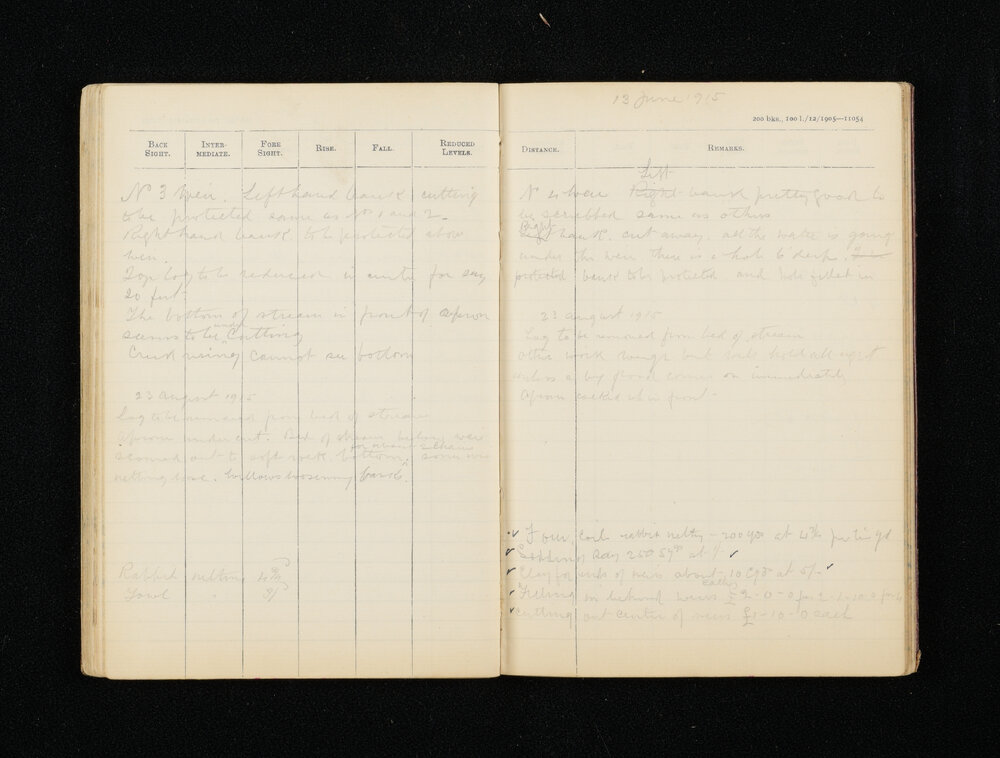 BACK SIGHT. INTER-MEDIATE. FORE SIGHT. RISE. FALL. REDUCED LEVELS.
No 3 Weir. Left hand bank cutting
to be protected same as No 1 and 2.
Right hand bank to be protected above
weir.
Top log to be in center for say
20 feet.
The bottom of stream in front of apron
seems to be under cutting
Creek rising cannot see bottom
23 August 1915
Log to be removed from bed of stream
Apron under cut. Bed of stream below weir
scoured out to soft rock bottom for about 2 chains. some wire
netting loose. Willows loosening bank.
Rabbit netting 4
Fowl " 3/
13 June 1915
200 bks., 100 l./12/1905—11054
DISTANCE. REMARKS.
Left
N 4 Weir Right bank pretty good to
be scrubbed same as others
Right
Left bank. cut away. all the water is going
under the weir there is a hole 6' deep.
protected bank to be protected and hole filled in
23 August 1915
Log to be removed from bed of stream
other work rough but will hold all right
unless a big flood comes on immediately
Apron in front.
Four coil rabbit netting – 200 yds at
250 at 1/-
Clay for ends of weirs about 10 c yds at 5/-
Filling in behind weirs £2-0-0
Cutting out center of weirs £1-10-0 each